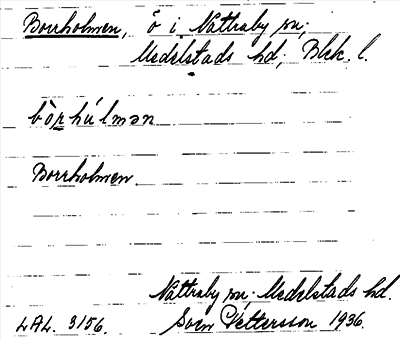 Borrholmen, ö i Nättraby sn;
Medelstads hd; Blek. l.
bòrhúlmən
Borrholmen
Nättraby sn; Medelstads hd.
LAL. 3156. Sven Pettersson 1936.